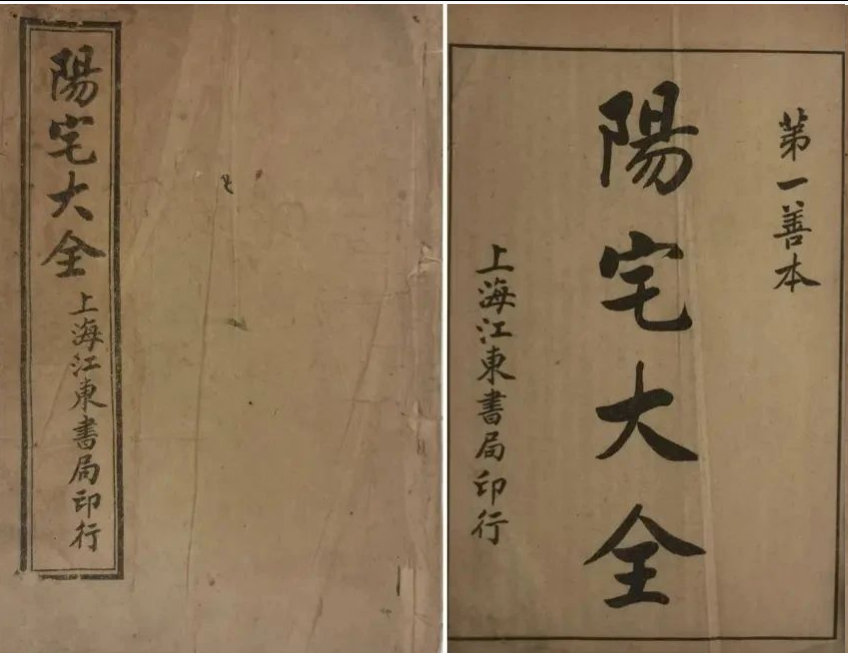 陽宅大全
上海江東書局印行
第一善本
陽宅大全
上海江東書局印行